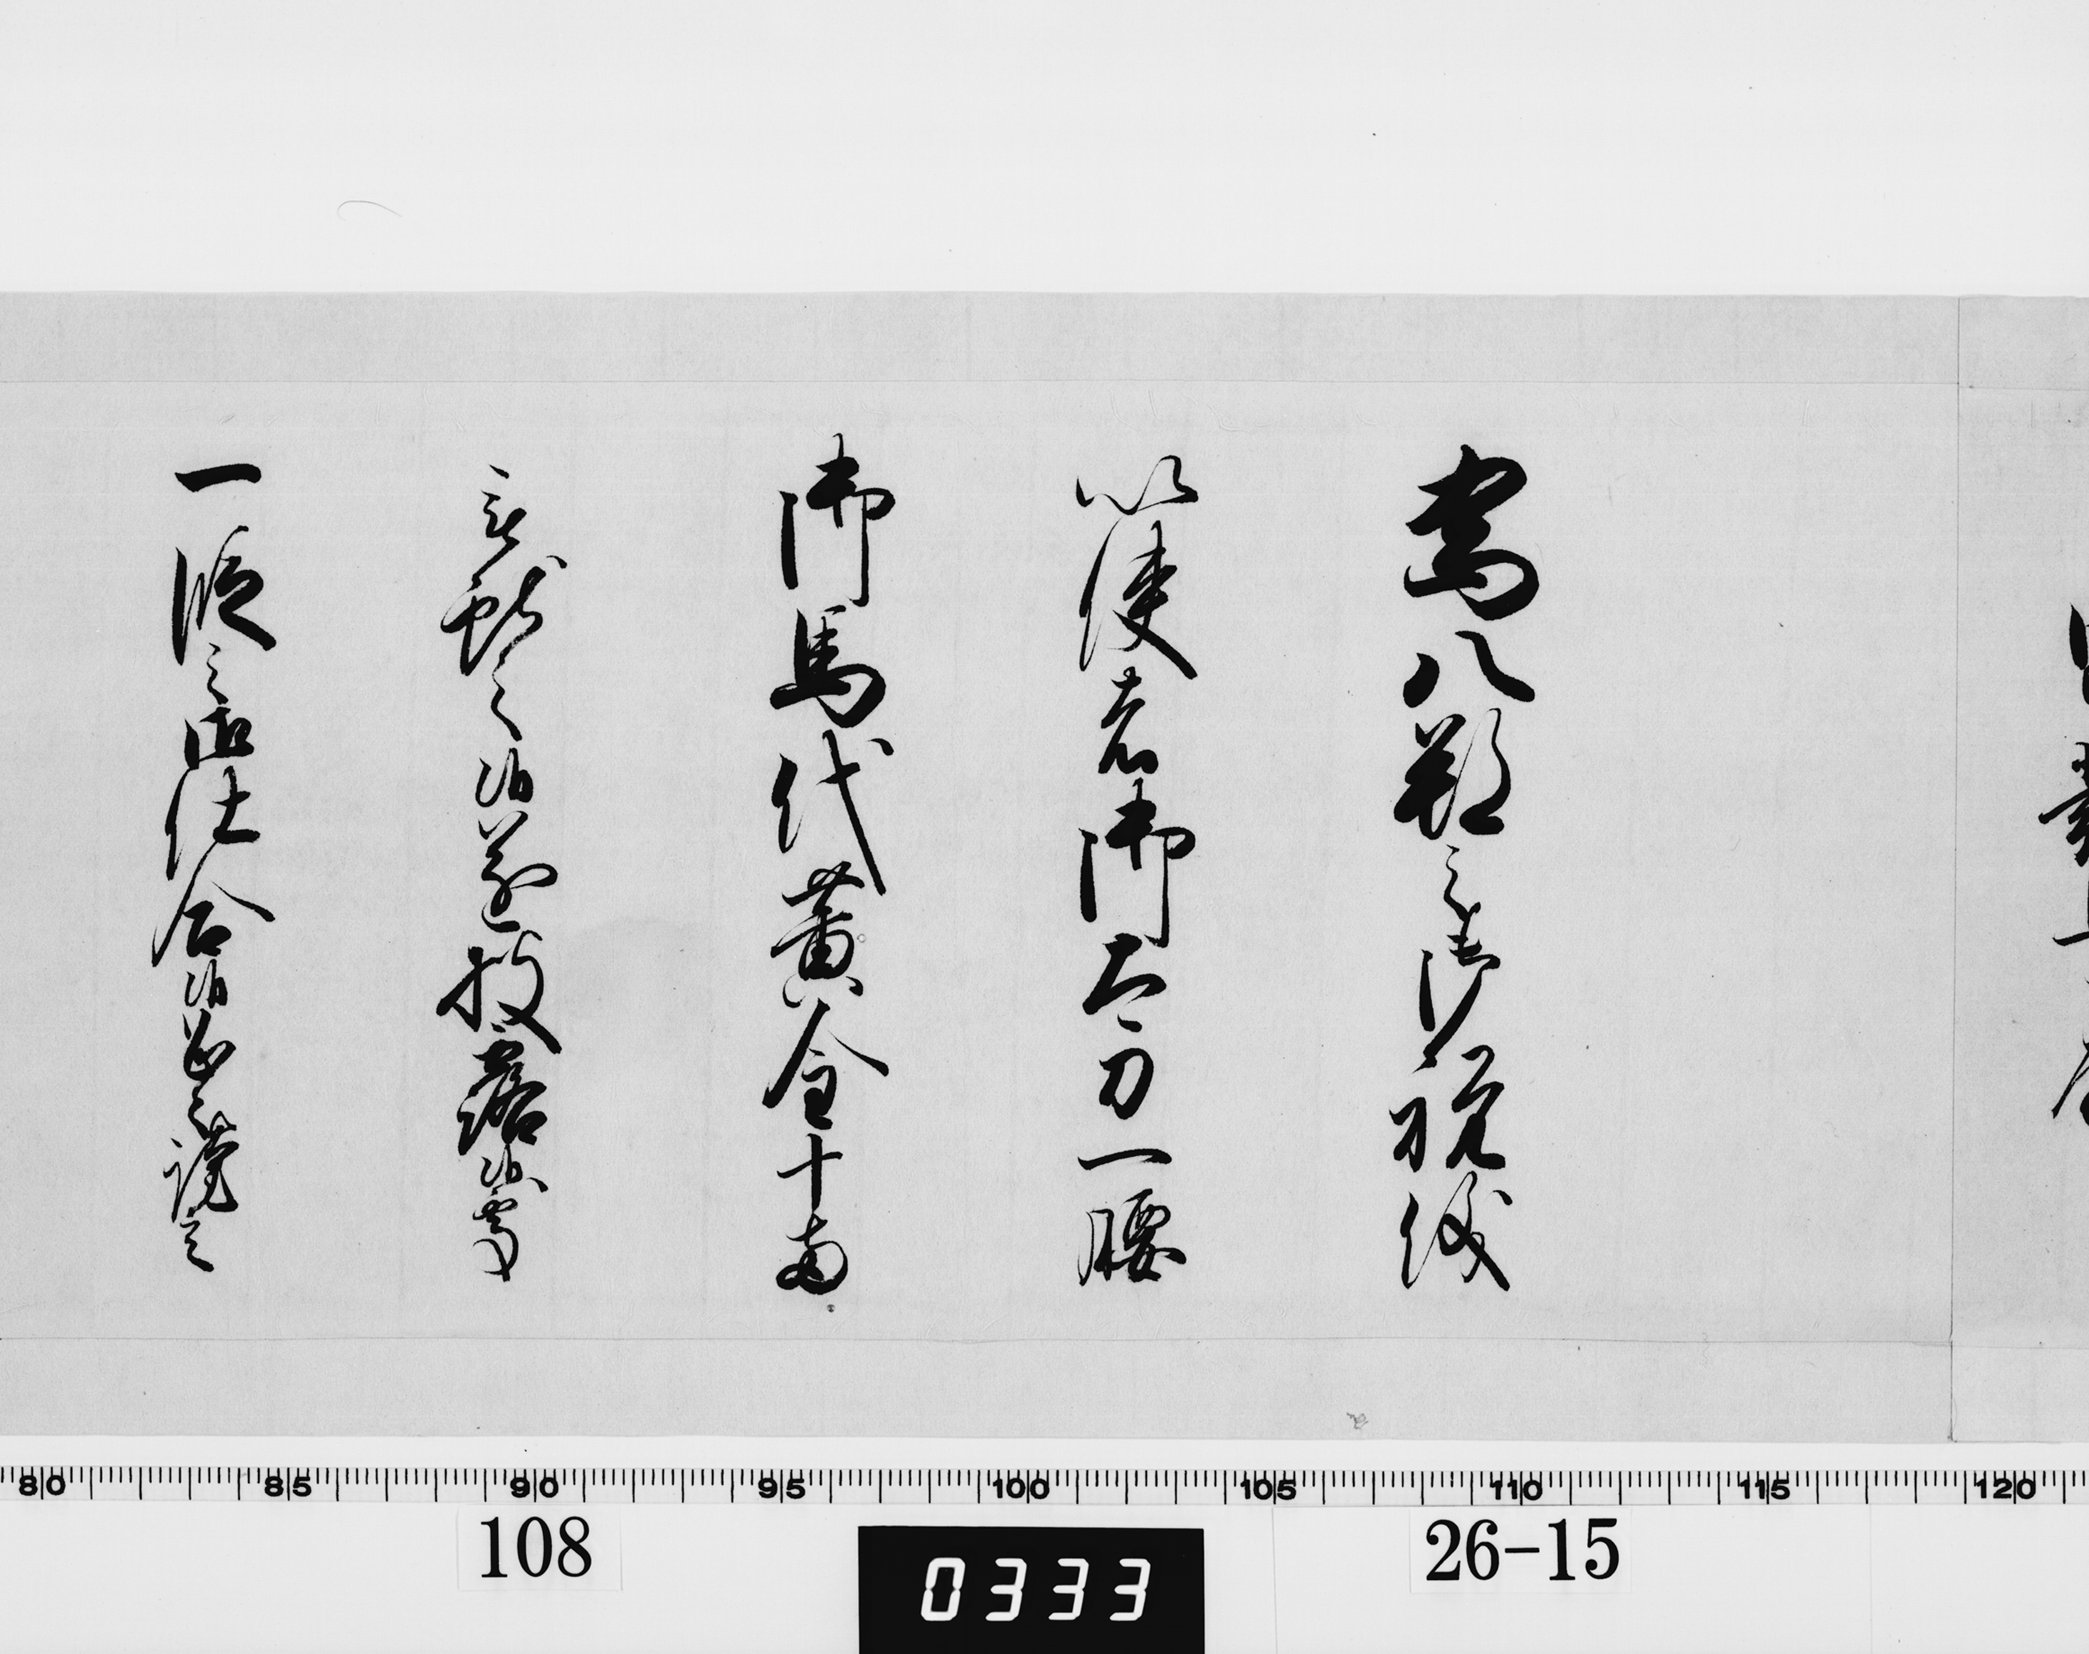 為八朔之御祝儀
以使者御太刀一腰
御馬代黄金十両
被献之候遂披露候処
一段之御仕合候恐々謹言
80 85 90 95 100 105 110 115 120
108
0333
26-15